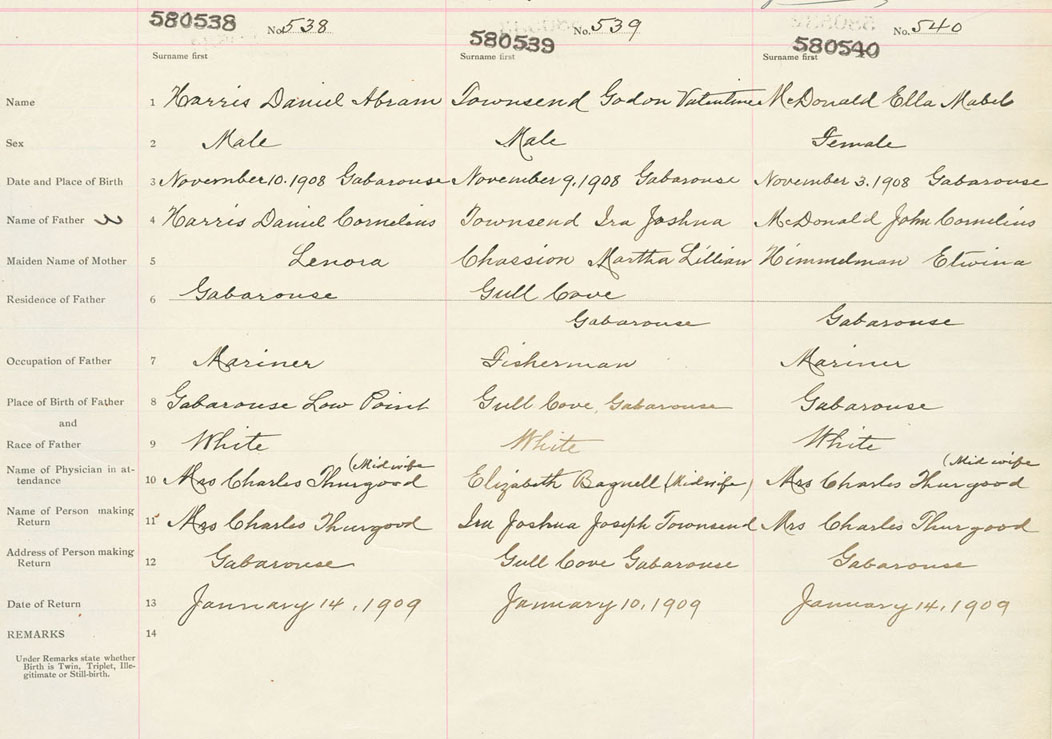 580538 No. 538 580539 No. 539 580540 No. 540
Surname first Surname first Surname first
Name 1 Harris Daniel Abram Townsend Godon Valentine McDonald Ella Mabel
Sex 2 Male Male Female
Date and Place of Birth 3 November 10. 1908 Gabarouse November 9, 1908 Gabarouse November 3. 1908 Gabarouse
Name of Father 4 Harris Daniel Cornelius Townsend Ira Joshua McDonald John Cornelius
Maiden Name of Mother 5 Lenora Chassion Martha Lillian Himmelman Etwina
Residence of Father 6 Gabarouse Gull Cove
Gabarouse Gabarouse
Occupation of Father 7 Mariner Fisherman Mariner
Place of Birth of Father 8 Gabarouse Low Point Gull Cove, Gabarouse Gabarouse
and
Race of Father 9 White White White
(Midwife (Midwife
Name of Physician in at-
tendance 10 Mrs Charles Thurgood Elizabeth Bagnell (Midwife) Mrs Charles Thurgood
Name of Person making
Return 11 Mrs Charles Thurgood Ira Joshua Joseph Townsend Mrs Charles Thurgood
Address of Person making
Return 12 Gabarouse Gull Cove Gabarouse Gabarouse
Date of Return 13 January 14, 1909 January 10, 1909 January 14, 1909
REMARKS 14
Under Remarks state whether
Birth is Twin, Triplet, Ille-
gitimate or Still-birth.